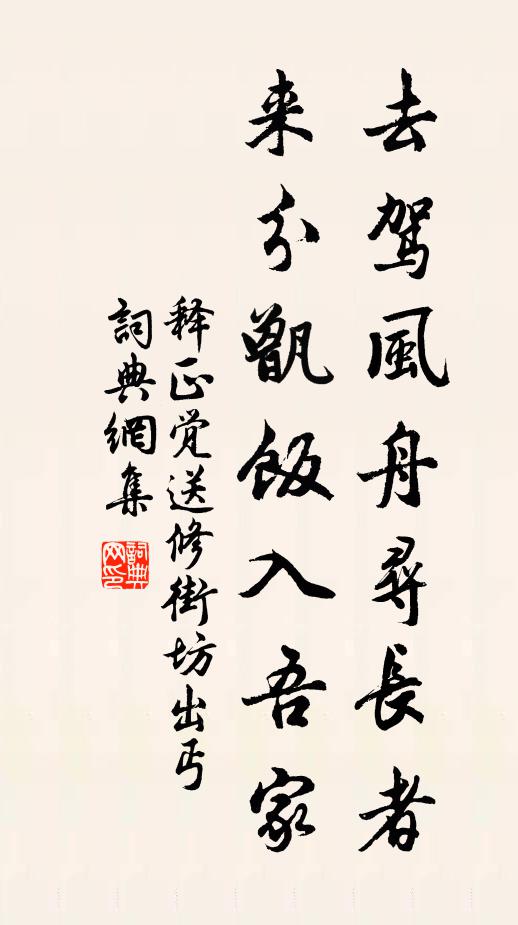 去駕風舟尋長者
来分甑飯入吾家
释正覺送修街坊出丐
詞典網集
詞典网印